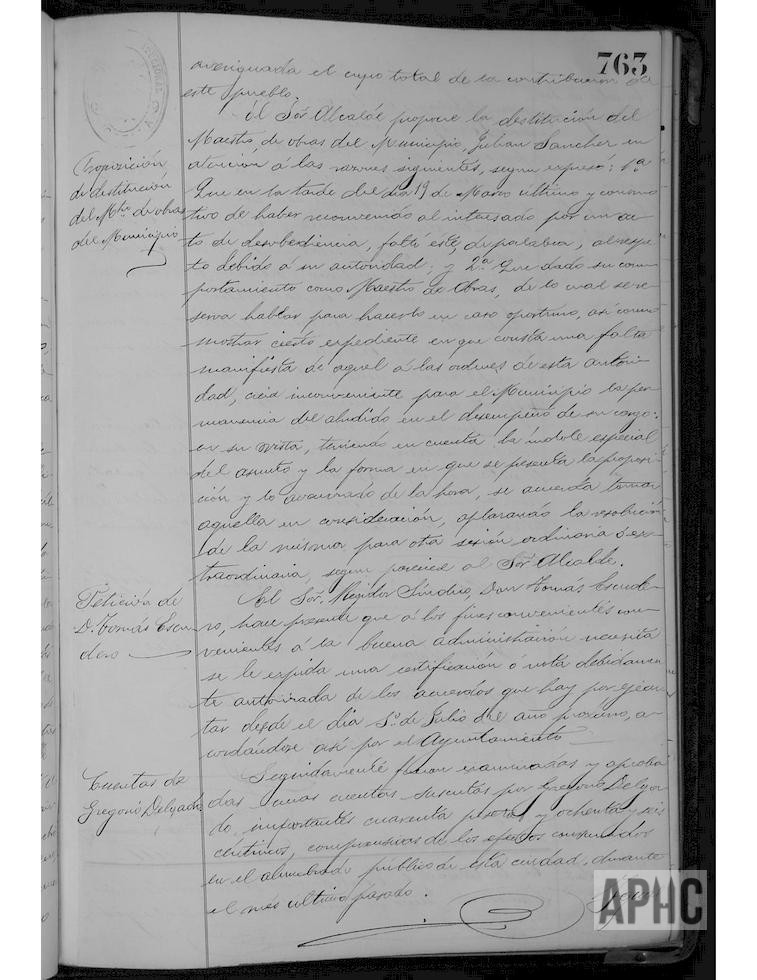 763
averiguada el cupo total de la contribucion de
este pueblo.
Proposición
de destitución
del Mtro. de obras
del Municipio
El Sor. Alcalde propone la destitución del
Maestro, de obras del Municipio, Julian Sanchez en
atencion á las razones siguientes, segun expresó: 1ª
Que en la tarde del dia 19 de Marzo último y con mo
tivo de haber reconvenido al interesado por un ac-
to de desobediencia, faltó éste, de palabra, al respe-
to debido á su autoridad; y 2ª Que dado su com-
portamiento como Maestro de Obras, de lo cual se re-
serva hablar para hacerlo en caso oportuno, así como
mostrar cierto expediente en que consta una falta
manifiesta de aquel á las ordenes de esta autori-
dad, creia inconveniente para el Municipio la per-
manencia del aludido en el desempeño de su cargo:
en su vista, teniendo en cuenta la indole especial
del asunto y la forma en que se presenta la proposi-
ción y lo avanzado de la hora, se acuerda tomar
aquella en consideración, aplazando la resolución
de la misma para otra sesión ordinaria ó ex-
traordinaria, segun parezca al Sor. Alcalde.
Petición de
D. Tomás Escu
dero
El Sor. Regidor Síndico, Don Tomás Escude-
ro, hace presente que á los fines convenientes con-
venientes á la buena administración necesita
se le expida una certificación o nota debidamen
te autorizada de los acuerdos que hay por ejecu-
tar desde el dia 1º de Julio del año próximo, a-
cordandose así por el Ayuntamiento
Cuentas de
Gregorio Delgado
Seguidamente fueron examinadas y aproba
das unas cuentas suscritas por Gregorio Delga-
do, importantes cuarenta pesetas y ochenta y seis
céntimos, comprensivas de los efectos consumidos
en el alumbrado público de esta ciudad, durante
el mes último pasado.
APHC